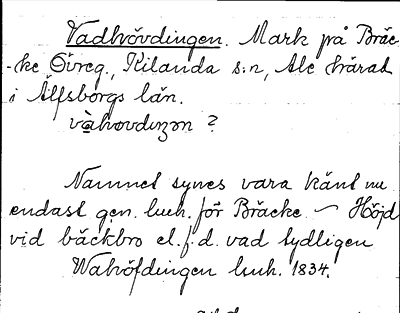 Vadhövdingen. Mark på Bräc-
-ke Övreg., Kilanda s:n, Ale härad
i Älfsborgs län.
vàhövdiŋən ?
Namnet synes vara känt nu
endast gen. luuh. för Bräcke. — Höjd
vid bäckbro el. f.d. vad tydligen
Wahöfdingen luuh. 1834.